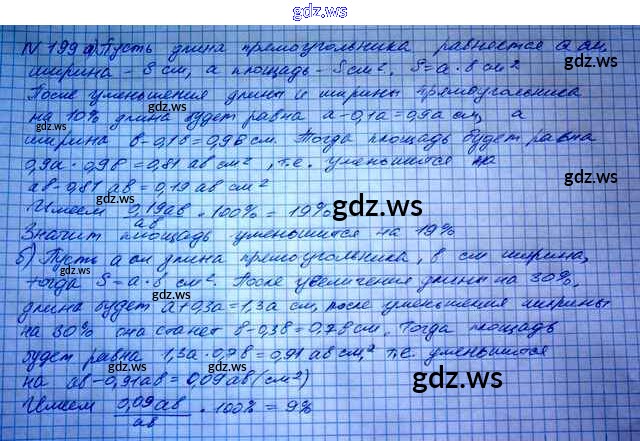 gdz.ws
N 199 а) Пусть длина прямоугольника равняется a см,
ширина - в см, а площадь - S см², S = a · в см²
После уменьшения длины и ширины прямоугольника
на 10% длина будет равна a - 0,1a = 0,9a см, а
ширина в - 0,1в = 0,9в см. Тогда площадь будет равна
0,9a · 0,9в = 0,81 aв см², т.е. уменьшится на
aв - 0,81 aв = 0,19 aв см²
Имеем 0,19aв / aв · 100% = 19%
Значит площадь уменьшится на 19%
б) Пусть a см длина прямоугольника, в см ширина,
тогда S = a · в см². После увеличения длины на 30%,
длина будет a + 0,3a = 1,3a см, после уменьшения ширины
на 30% она станет в - 0,3в = 0,7в см. Тогда площадь
будет равна 1,3a · 0,7в = 0,91 aв см², т.е. уменьшится
на aв - 0,91aв = 0,09aв (см²)
Имеем 0,09aв / aв · 100% = 9%
gdz.ws
gdz.ws
gdz.ws
gdz.ws
gdz.ws
gdz.ws
gdz.ws
gdz.ws